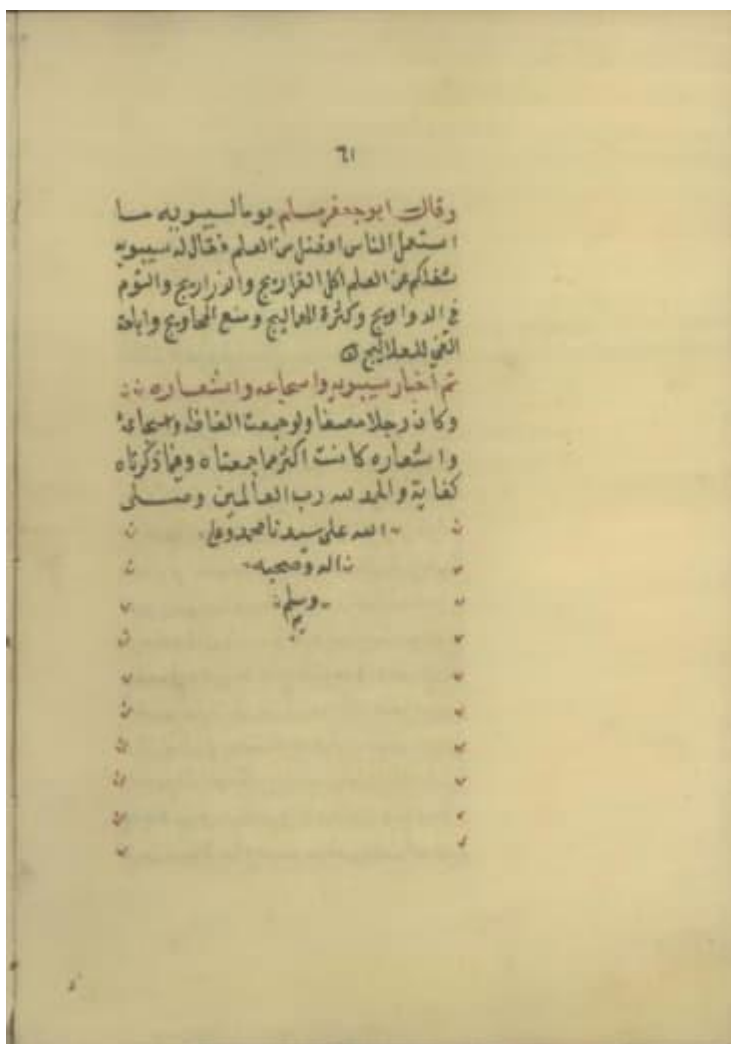 ٦١
وقال ابو جعفر مسلم يوما لسيبويه ما
استعمل الناس افضل من العلم فقال له سيبويه
شغلكم عن العلم اكل الفراريج والدراريج والنوم
في الدواويج وكثرة ومنع المحاويج واباحة

تم أخبار سيبويه واسجاعه واشعاره
وكان رجلا ولو جمعت الفاظه واسجاعه
واشعاره كانت اكثر مما جمعناه وفيما ذكرناه
كفاية والحمد لله رب العالمين وصلى
الله على سيدنا محمد وعلى
اله وصحبه
وسلم